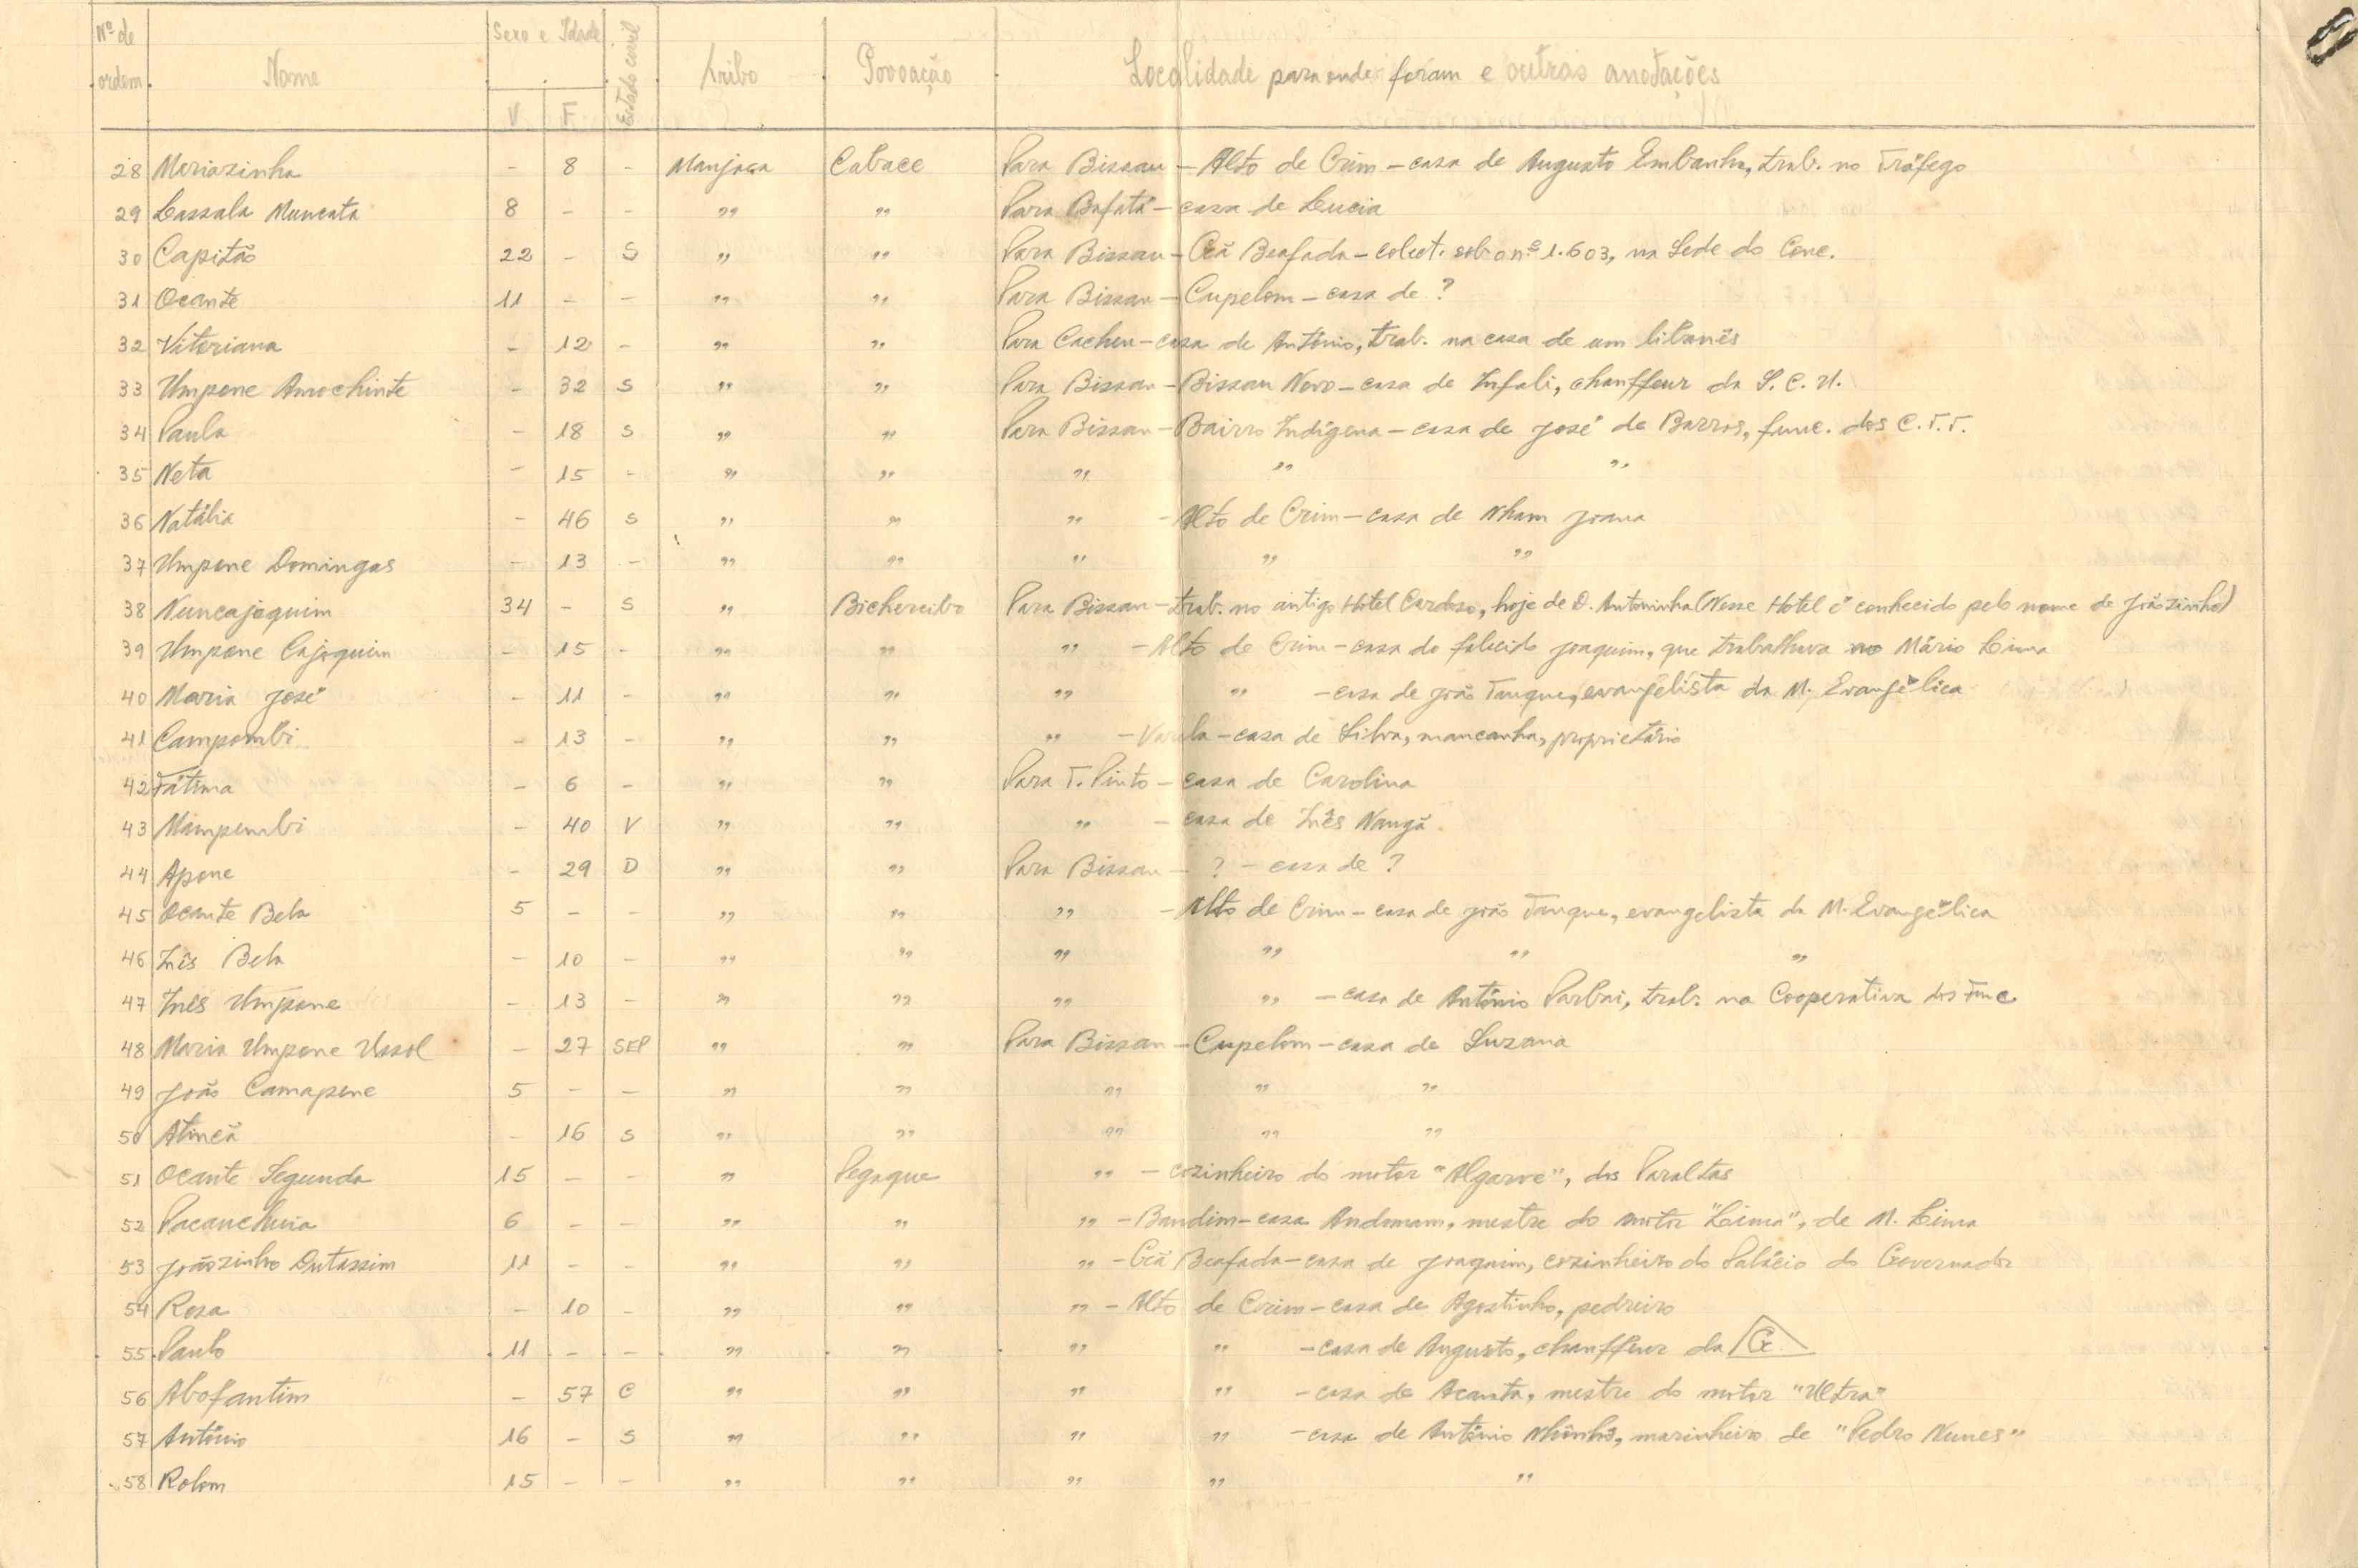 Nº de ordem Nome Sexo e Idade V F Estado civil Tribo Povoação Localidade para onde foram e outras anotações
28 Mariazinha - 8 - Manjaca Cabace Para Bissau - Alto de Crim - casa de Augusto Embanha, trab. no Tráfego
29 Cassala Muncata 8 - - " " Para Bafatá - casa de Lucia
30 Capitão 22 - S " " Para Bissau - Ceã Beafada - colect. sob o nº 1.603, na Sede do Conc.
31 Ocante 11 - - " " Para Bissau - Cupelom - casa de ?
32 Vitoriana - 12 - " " Para Cacheu - casa de António, trab. na casa de um libanês
33 Umpone Amochinte - 32 S " " Para Bissau - Bissau Novo - casa de Infali, chauffeur da S. C. U.
34 Paula - 18 S " " Para Bissau - Bairro Indígena - casa de José de Barros, func. dos C.T.T.
35 Neta - 15 - " " " " "
36 Natália - 46 S " " " - Alto de Crim - casa de Nham Joana
37 Umpone Domingas - 13 - " " " " "
38 Nuncajoquim 34 - S " Bichercibo Para Bissau - trab. no antigo Hotel Cardoso, hoje de D. Antoninha (Nesse Hotel é conhecido pelo nome de Joãozinho)
39 Umpone Cajoquim - 15 - " " " - Alto de Crim - casa do falecido Joaquim, que trabalhava no Mário Lima
40 Maria José - 11 - " " " " - casa de João Tanque, evangelista da M. Evangélica
41 Campombi - 13 - " " " - Varela - casa de Silva, mancanha, proprietário
42 Fátima - 6 - " " Para T. Pinto - casa de Carolina
43 Mampembi - 40 V " " " - casa de Inês Nangã
44 Apone - 29 D " " Para Bissau - ? - casa de ?
45 Ocante Bela 5 - - " " " - Alto de Crim - casa de João Tanque, evangelista da M. Evangélica
46 Inês Bela - 10 - " " " " " "
47 Inês Umpone - 13 - " " " " - casa de António Parbai, trab. na Cooperativa dos Func.
48 Maria Umpone Ussol - 27 SEP " " Para Bissau - Cupelom - casa de Suzana
49 João Camapene 5 - - " " " " "
50 Atincã - 16 S " " " " "
51 Ocante Segunda 15 - - " Pegaque " - cozinheiro do motor "Algarve", dos Paraltas
52 Pacanchuia 6 - - " " " - Bandim - casa Andomam, mestre do motor "Lima", de M. Lima
53 Joãozinho Dutassim 11 - - " " " - Ceã Beafada - casa de Joaquim, cozinheiro do Palácio do Governador
54 Rosa - 10 - " " " - Alto de Crim - casa de Agostinho, pedreiro
55 Paulo 11 - - " " " " - casa de Augusto, chauffeur da G
56 Abofantim - 57 C " " " " - casa de Acanta, mestre do motor "Ultra"
57 António 16 - S " " " " - casa de António Nhinhô, marinheiro de "Pedro Nunes"
58 Rolom 15 - - " " " " "